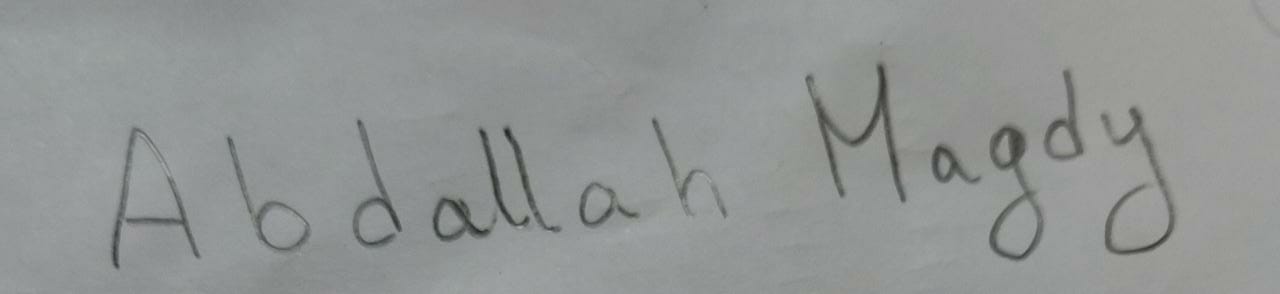 Abdallah Magdy